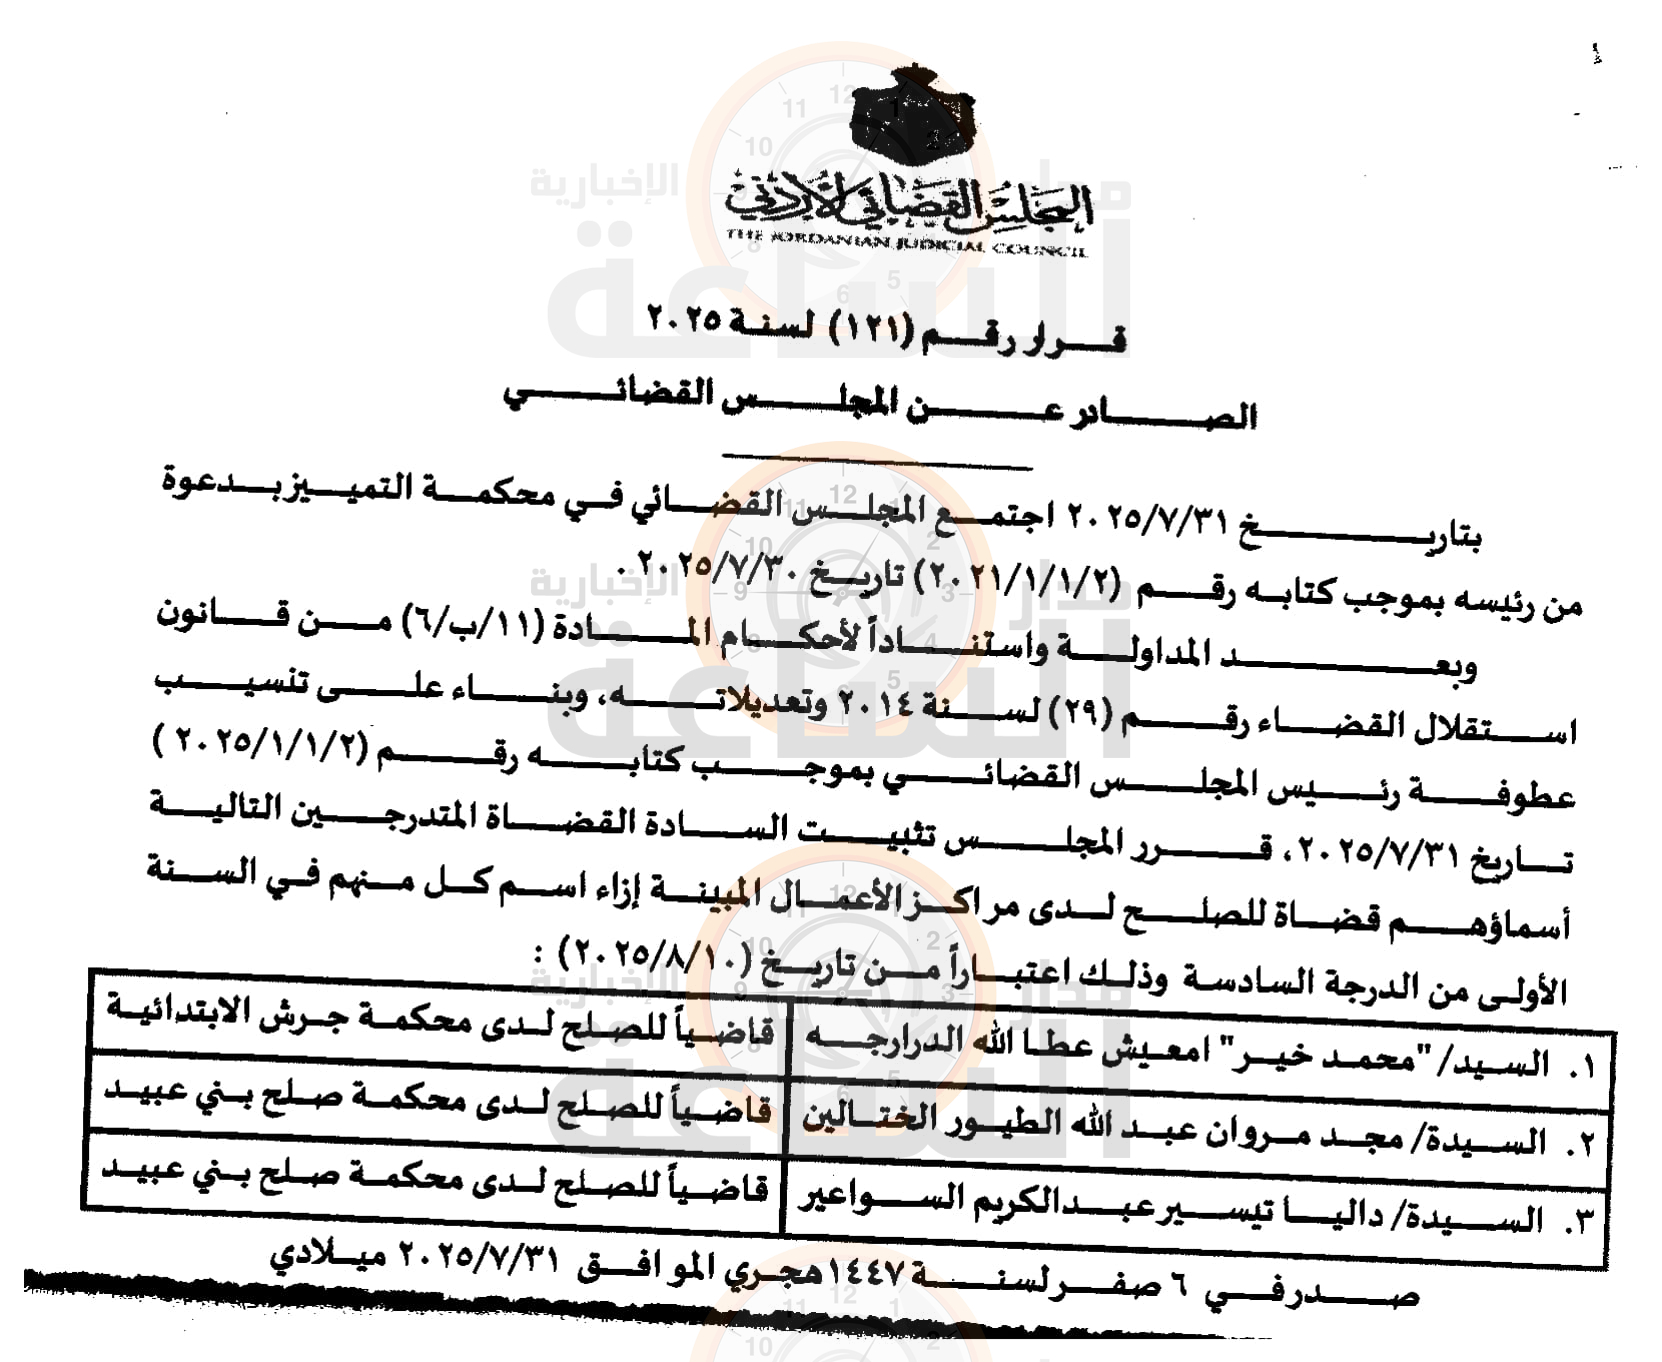 المجلس القضائي الأردني
THE JORDANIAN JUDICIAL COUNCIL
قرار رقم (١٢١) لسنة ٢٠٢٥
الصادر عن المجلس القضائي
بتاريخ ٢٠٢٥/٧/٣١ اجتمع المجلس القضائي في محكمة التمييز بدعوة
من رئيسه بموجب كتابه رقم (٢٠٢١/١/١/٢) تاريخ ٢٠٢٥/٧/٣٠.
وبعد المداولة واستناداً لأحكام المادة (١١/ب/٦) من قانون
استقلال القضاء رقم (٢٩) لسنة ٢٠١٤ وتعديلاته، وبناء على تنسيب
عطوفة رئيس المجلس القضائي بموجب كتابه رقم (٢٠٢٥/١/١/٢)
تاريخ ٢٠٢٥/٧/٣١، قرر المجلس تثبيت السادة القضاة المتدرجين التالية
أسماؤهم قضاة للصلح لدى مراكز الأعمال المبينة إزاء اسم كل منهم في السنة
الأولى من الدرجة السادسة وذلك اعتباراً من تاريخ (٢٠٢٥/٨/١٠) :
١. السيد/ "محمد خير" امعيش عطا الله الدرارجه قاضياً للصلح لدى محكمة جرش الابتدائية
٢. السيدة/ مجد مروان عبد الله الطيور الختالين قاضياً للصلح لدى محكمة صلح بني عبيد
٣. السيدة/ داليا تيسير عبدالكريم السواعير قاضياً للصلح لدى محكمة صلح بني عبيد
صدر في ٦ صفر لسنة ١٤٤٧ هجري الموافق ٢٠٢٥/٧/٣١ ميلادي
مدار الساعة الإخبارية